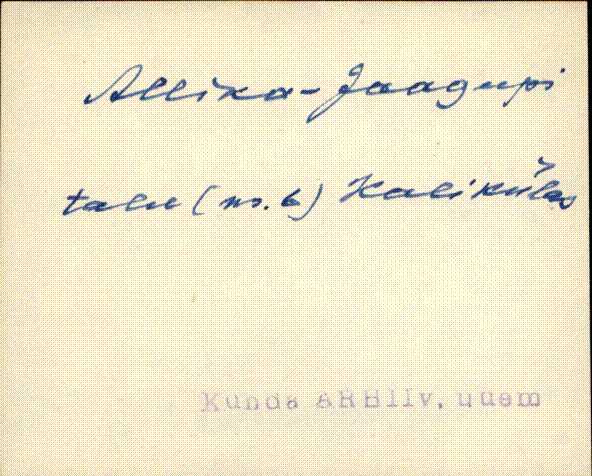 Allika-Jaagupi
talu (nr. 6) Kaliküĺas
Kunda ARHIIV, uuem